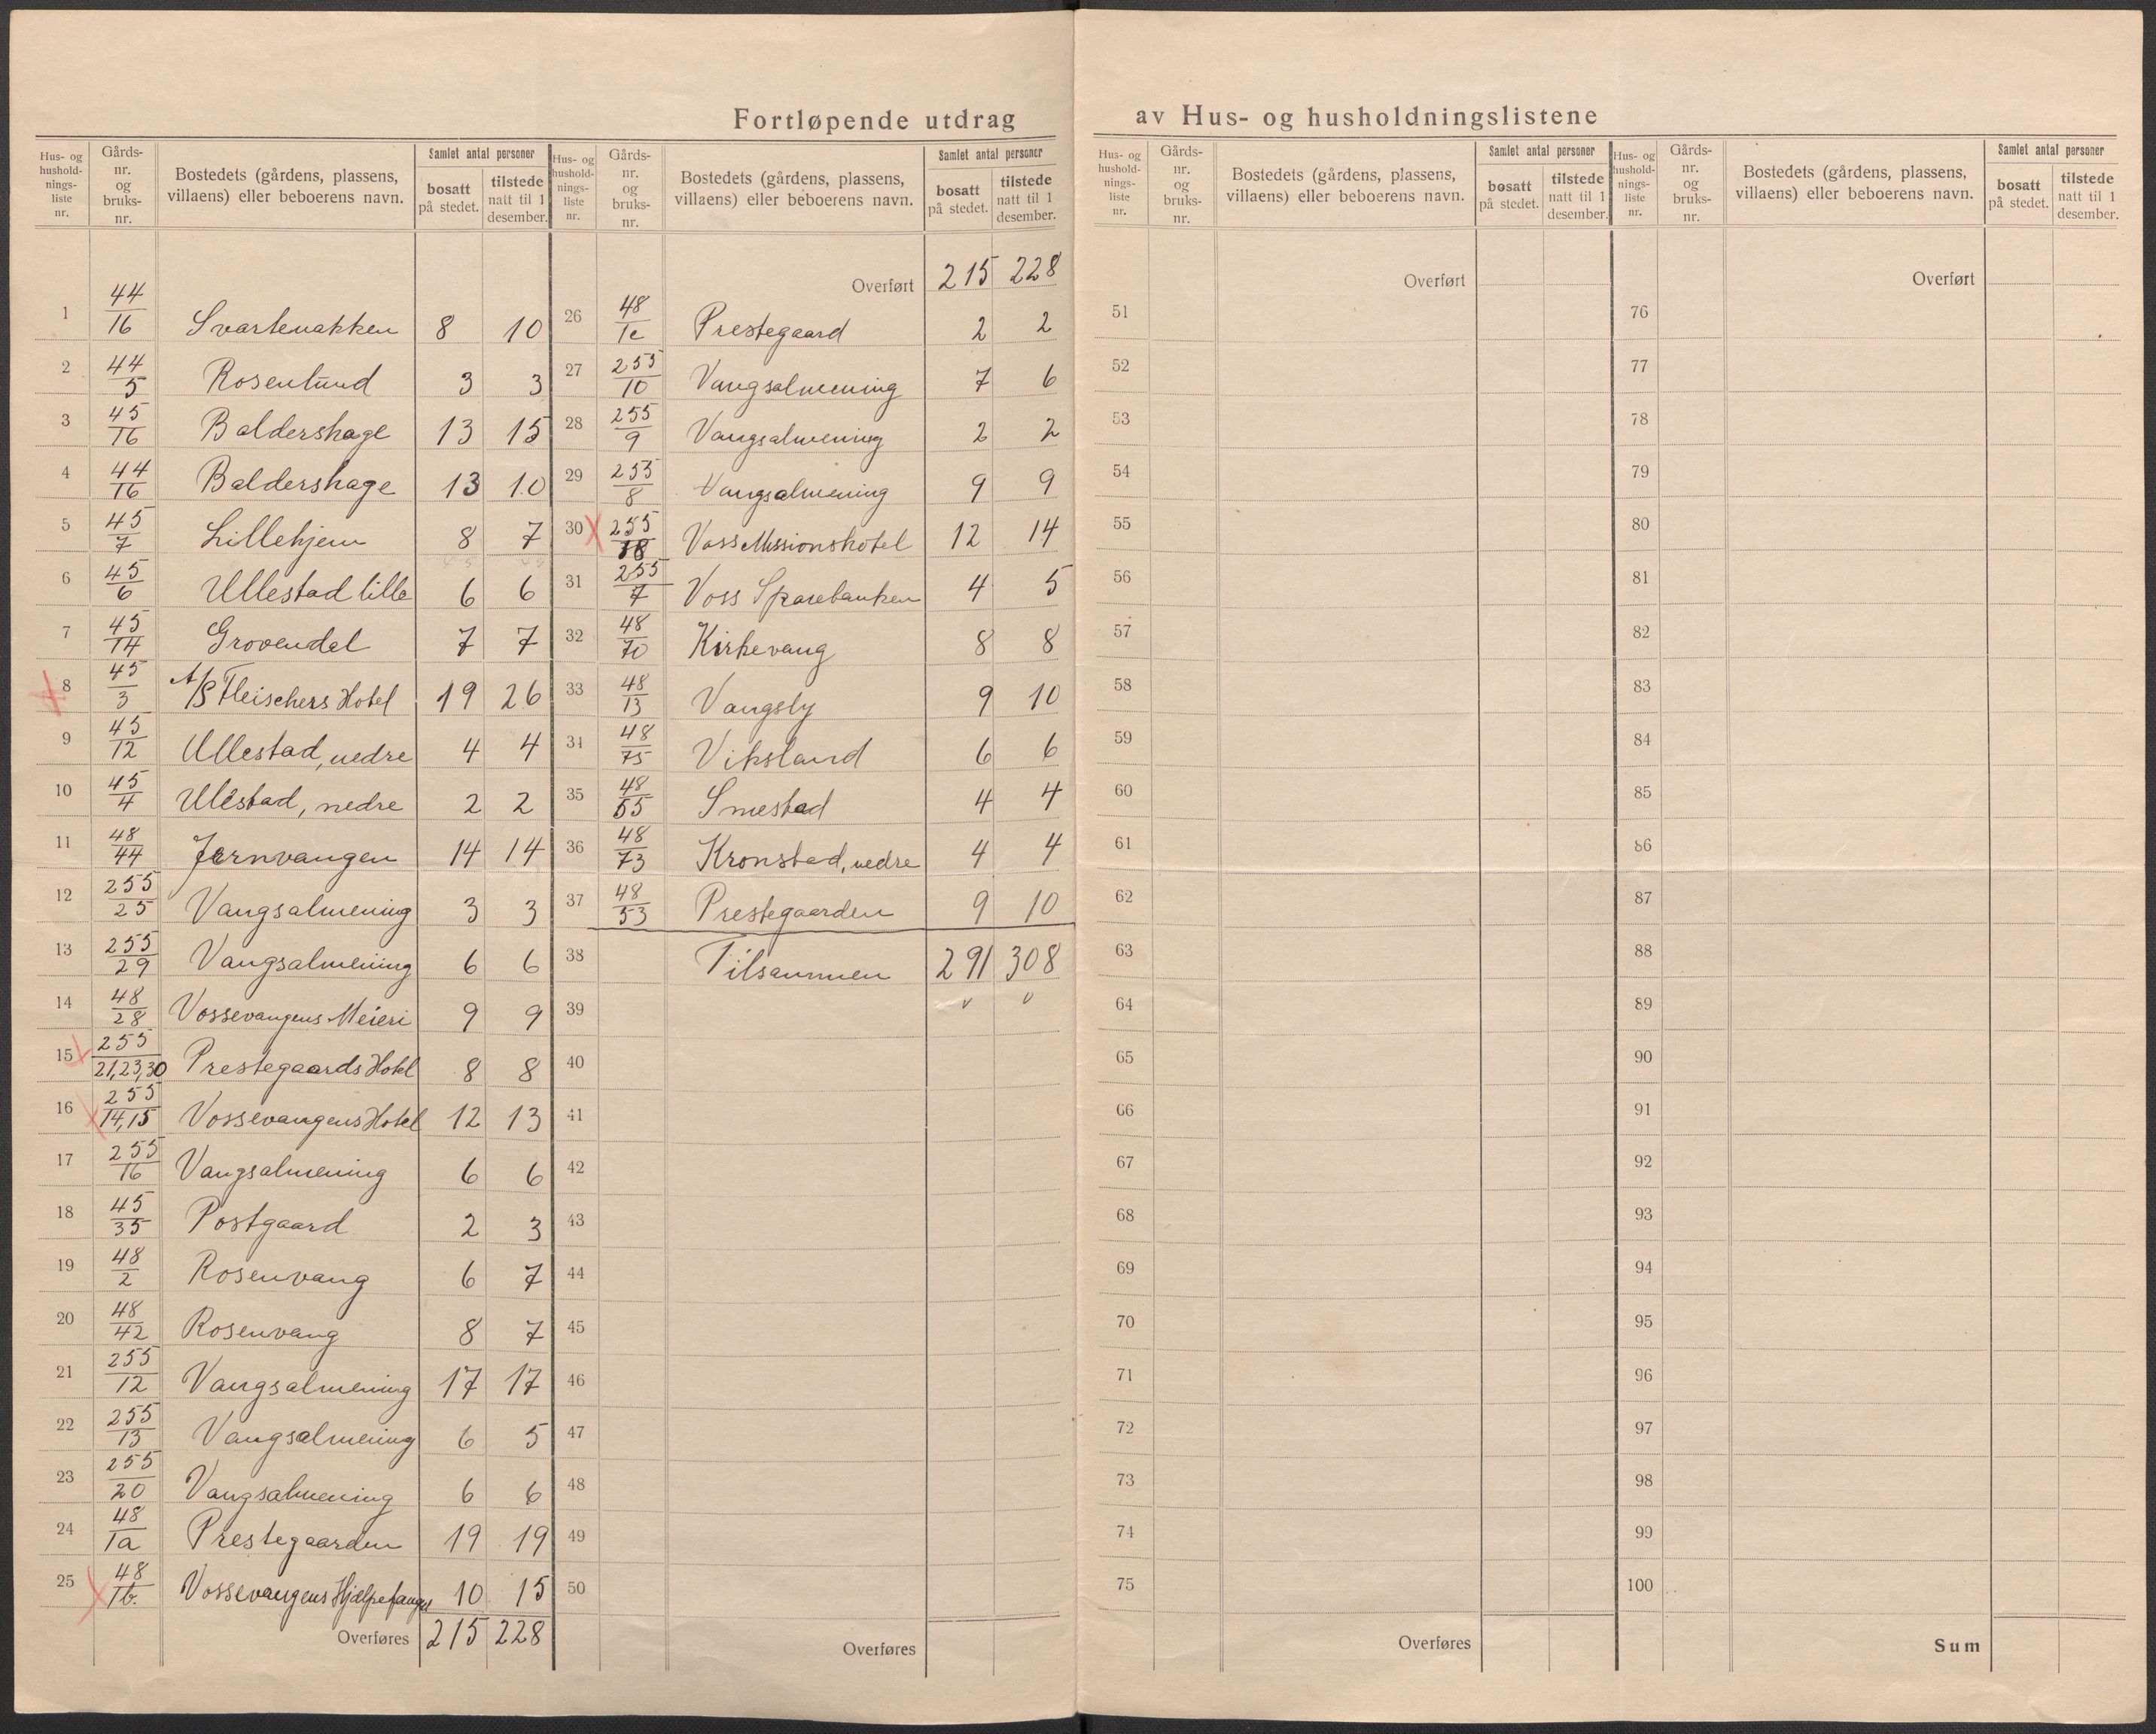 Fortløpende utdrag av Hus- og husholdningslistene
Hus- og hushold-nings-liste nr. | Gårds-nr. og bruks-nr. | Bostedets (gårdens, plassens, villaens) eller beboerens navn. | Samlet antal personer | bosatt på stedet. | tilstede natt til 1 desember.
1 44/16 Svartenakken 8 10
2 44/5 Rosenlund 3 3
3 45/16 Baldershage 13 15
4 44/16 Baldershage 13 10
5 45/7 Lillehjem 8 7
6 45/6 Ullestad lille 6 6
7 45/14 Grovendal 7 7
8 45/3 A/S Fleischers Hotel 19 26
9 45/12 Ullestad, nedre 4 4
10 45/4 Ullestad, nedre 2 2
11 48/44 Jernvangen 14 14
12 255/25 Vangsalmening 3 3
13 255/29 Vangsalmening 6 6
14 48/28 Vossevangens Meieri 9 9
15 255/21,23,30 Prestegaards Hotel 8 8
16 255/14,15 Vossevangens Hotel 12 13
17 255/16 Vangsalmening 6 6
18 45/35 Postgaard 2 3
19 48/2 Rosenvang 6 7
20 48/42 Rosenvang 8 7
21 255/12 Vangsalmening 17 17
22 255/13 Vangsalmening 6 5
23 255/20 Vangsalmening 6 6
24 48/1a Prestegaarden 19 19
25 48/1b. Vossevangens Hjælpefængsel 10 15
Overføres 215 228
Hus- og hushold-nings-liste nr. | Gårds-nr. og bruks-nr. | Bostedets (gårdens, plassens, villaens) eller beboerens navn. | Samlet antal personer | bosatt på stedet. | tilstede natt til 1 desember.
Overført 215 228
26 48/1c Prestegaard 2 2
27 255/10 Vangsalmening 7 6
28 255/9 Vangsalmening 2 2
29 255/8 Vangsalmening 9 9
30 255/18 Voss Missionshotel 12 14
31 255/7 Voss Sparebanken 4 5
32 48/70 Kirkevang 8 8
33 48/13 Vangsby 9 10
34 48/75 Viksland 6 6
35 48/55 Smestad 4 4
36 48/73 Kronstad, nedre 4 4
37 48/53 Prestegaarden 9 10
38 Tilsammen 291 308
39
40
41
42
43
44
45
46
47
48
49
50
Overføres
Hus- og hushold-nings-liste nr. | Gårds-nr. og bruks-nr. | Bostedets (gårdens, plassens, villaens) eller beboerens navn. | Samlet antal personer | bosatt på stedet. | tilstede natt til 1 desember.
Overført
51
52
53
54
55
56
57
58
59
60
61
62
63
64
65
66
67
68
69
70
71
72
73
74
75
Overføres
Hus- og hushold-nings-liste nr. | Gårds-nr. og bruks-nr. | Bostedets (gårdens, plassens, villaens) eller beboerens navn. | Samlet antal personer | bosatt på stedet. | tilstede natt til 1 desember.
Overført
76
77
78
79
80
81
82
83
84
85
86
87
88
89
90
91
92
93
94
95
96
97
98
99
100
Sum